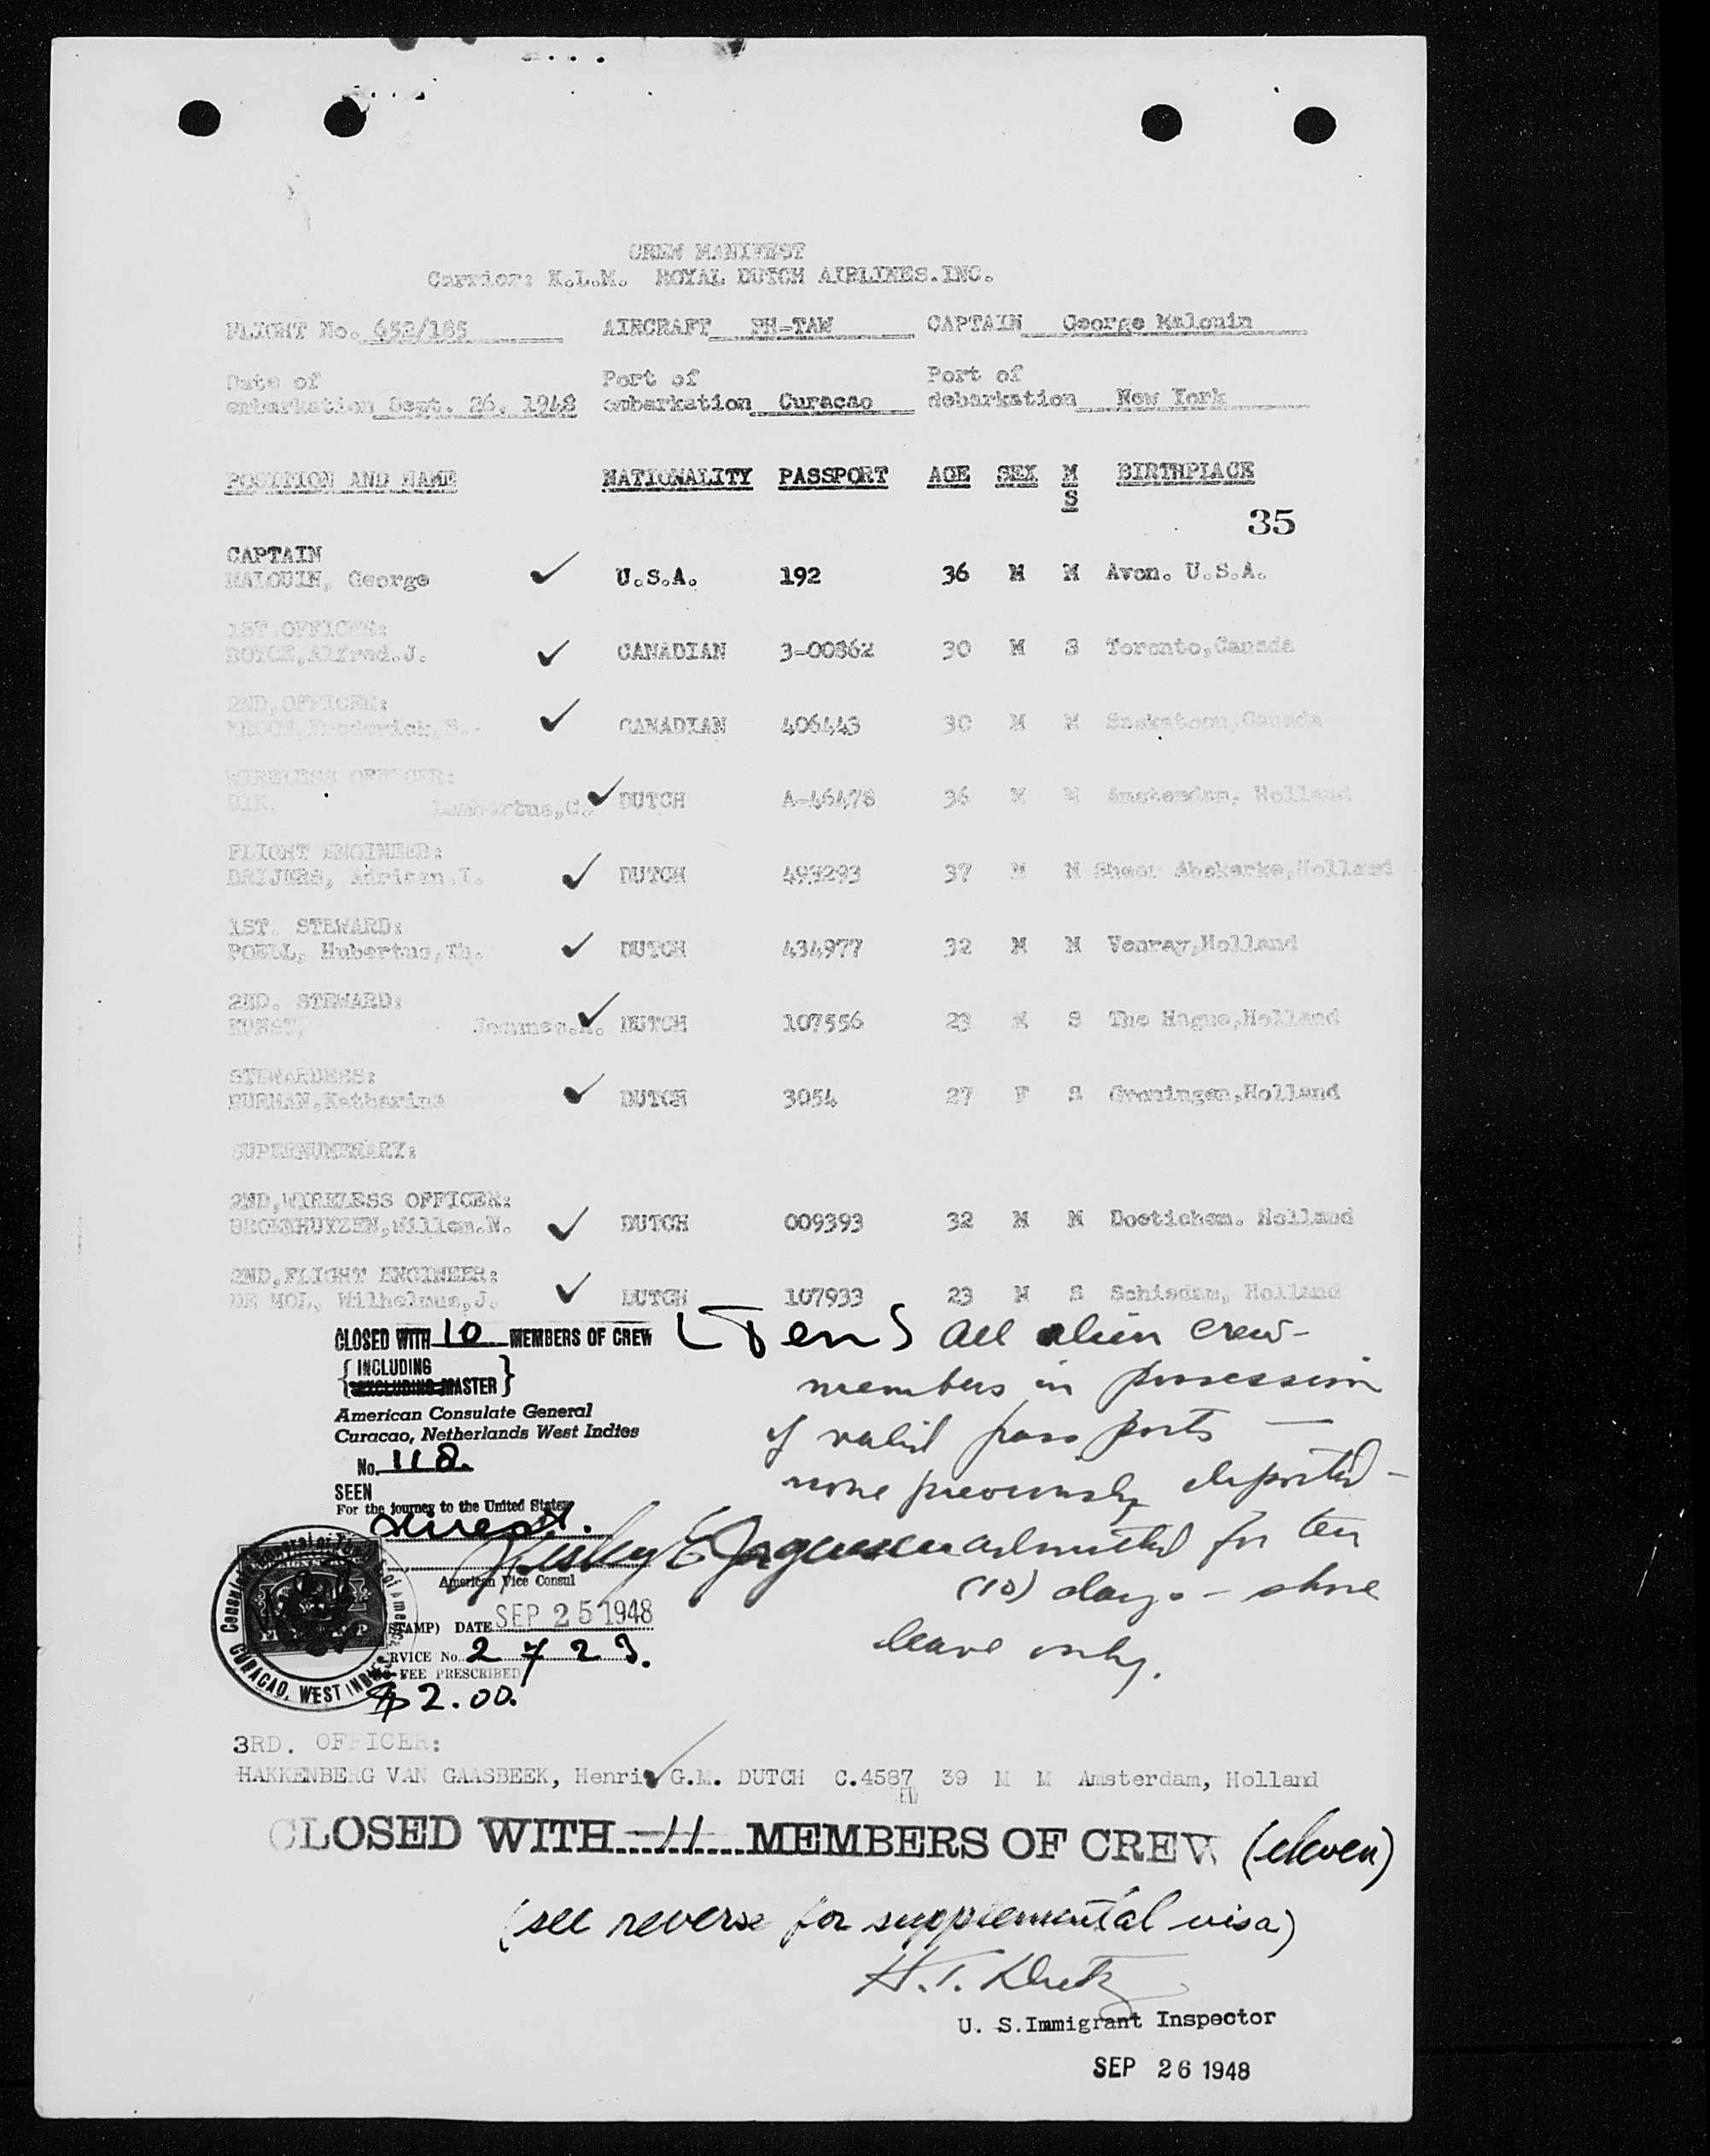 CREW MANIFEST
Carrier: K.L.M. ROYAL DUTCH AIRLINES.INC.
FLIGHT No. 652/185 AIRCRAFT PH-TAW CAPTAIN George Malouin
Date of Port of Port of
embarkation Sept. 26, 1948 embarkation Curacao debarkation New York
POSITION AND NAME NATIONALITY PASSPORT AGE SEX M BIRTHPLACE
S
35
CAPTAIN
MALOUIN, George U.S.A. 192 36 M M Avon. U.S.A.
1ST.OFFICER:
ROYCE,Alfred.J. CANADIAN 3-00862 30 M S Toronto,Canada
2ND,OFFICER:
Frederick,S. CANADIAN 406443 30 M M Saskatoon,Canada
WIRELESS OFFICER:
Lambertus,C. DUTCH A-46478 36 M M Amsterdam, Holland
FLIGHT ENGINEER:
Adriaan.I. DUTCH 493293 37 M M Abskerke,Holland
1ST. STEWARD:
POELL, Hubertus,Th. DUTCH 434977 32 M M Venray,Holland
2ND. STEWARD:
KUNST, Joannes.A. DUTCH 107556 23 M S The Hague,Holland
STEWARDESS:
BURMAN,Katharina DUTCH 3054 27 F S Groningen,Holland
SUPERNUMERARY:
2ND,WIRELESS OFFICER:
Willem.N. DUTCH 009393 32 M M Doetichem. Holland
2ND,FLIGHT ENGINEER:
DE MOL, Wilhelmus,J. DUTCH 107933 23 M S Schiedam, Holland
CLOSED WITH 10 MEMBERS OF CREW (Ten) All alien crew-
{INCLUDING
EXCLUDING MASTER}
members in possession
American Consulate General
Curacao, Netherlands West Indies
of valid passports —
No. 118.
none previously deported -
SEEN
For the journey to the United States
direct.
admitted for ten
American Vice Consul
(10) days - shore
leave only.
(STAMP) DATE SEP 25 1948
SERVICE No. 2723.
FEE PRESCRIBED
$2.00.
CURACAO, WEST INDIES
3RD. OFFICER:
HAKKENBERG VAN GAASBEEK, Henri G.M. DUTCH C.4587 39 M M Amsterdam, Holland
CLOSED WITH 11 MEMBERS OF CREW (eleven)
(see reverse for supplemental visa)
U. S.Immigrant Inspector
SEP 26 1948